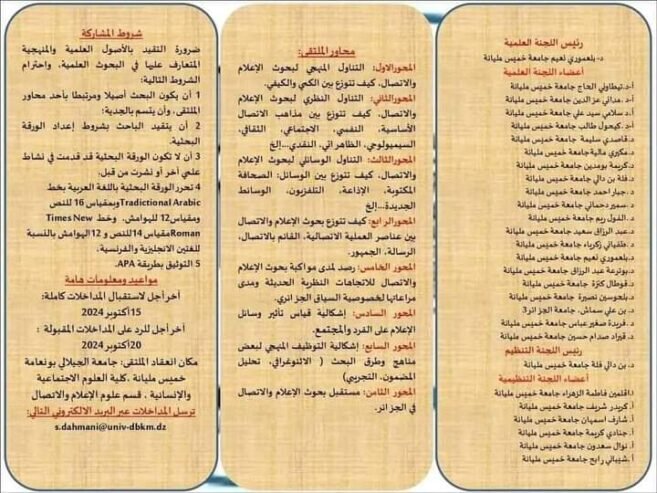 رئيس اللجنة العلمية
د- بلعموري نعيم جامعة خميس مليانة
أعضاء اللجنة العلمية
أ-د.تيطاوني الحاج جامعة خميس مليانة
أ-د. مداني عز الدين جامعة خميس مليانة
أ-د. سلامي سيد علي جامعة خميس مليانة
أ-د. كيحول طالب جامعة خميس مليانة
د. قاصدي سليمة جامعة خميس مليانة
د. مكيري مالية جامعة خميس مليانة
د. كريمة بومدين جامعة خميس مليانة
د. فلة بن دالي جامعة خميس مليانة
د. جبار احمد جامعة خميس مليانة
د. سمير دحماني جامعة خميس مليانة
د. الفول ريم جامعة خميس مليانة
د. عبد الرزاق سعيد جامعة خميس مليانة
د. طقباني زكرياء جامعة خميس مليانة
د. بلعموري نعيم جامعة خميس مليانة
د. بوترعة عبد الرزاق جامعة خميس مليانة
د. قوطال كنزة جامعة خميس مليانة
د. بلحوسين نصيرة جامعة خميس مليانة
د. بن علي سماش. جامعة الجزائر3
د. فريدة صغير عباس جامعة خميس مليانة
د. قيراد صدام حسين جامعة خميس مليانة
رئيس اللجنة التنظيم
د. بن دالي فلة جامعة خميس مليانة
أعضاء اللجنة التنظيمية
ا.اقلمين فاطمة الزهراء جامعة خميس مليانة
أ. كريدر شريف جامعة خميس مليانة
أ. شارف اسمهان جامعة خميس مليانة
أ. جنادي كريمة جامعة خميس مليانة
أ. نوال سعدون جامعة خميس مليانة
أ. شيباني رابح جامعة خميس مليانة
محاور الملتقى:
المحورالاول: التناول المنهجي لبحوث الإعلام
والاتصال، كيف تتوزع بين الكمي والكيفي.
المحورالثاني: التناول النظري لبحوث الإعلام
والاتصال، كيف تتوزع بين مذاهب الاتصال
الأساسية، النفسي، الاجتماعي، الثقافي،
السيميولوجي، الظاهراتي، النقدي...إلخ
المحورالثالث: التناول الوسائلي لبحوث الإعلام
والاتصال، كيف تتوزع بين الوسائل: الصحافة
المكتوبة، الإذاعة، التلفزيون، الوسائط
الجديدة...إلخ
المحورالرابع: كيف تتوزع بحوث الإعلام والاتصال
بين عناصر العملية الاتصالية، القائم بالاتصال،
الرسالة، الجمهور.
المحور الخامس: رصد لمدى مواكبة بحوث الإعلام
والاتصال للاتجاهات النظرية الحديثة ومدى
مراعاتها لخصوصية السياق الجزائري.
المحور السادس: إشكالية قياس تأثير وسائل
الإعلام على الفرد والمجتمع.
المحور السابع: إشكالية التوظيف المنهجي لبعض
مناهج وطرق البحث ( الاثنوغرافي، تحليل
المضمون، التجريبي)
المحور الثامن: مستقبل بحوث الإعلام والاتصال
في الجزائر.
شروط المشاركة
ضرورة التقيد بالأصول العلمية والمنهجية
المتعارف عليها في البحوث العلمية، واحترام
الشروط التالية:
1 أن يكون البحث أصيلا ومرتبطا بأحد محاور
الملتقى، وأن يتسم بالجدية:
2 أن يتقيد الباحث بشروط إعداد الورقة
البحثية.
3 أن لا تكون الورقة البحثية قد قدمت في نشاط
علمي آخر أو نشرت من قبل.
4 تحرر الورقة البحثية باللغة العربية بخط
Tradictional Arabicوبمقياس 16 للنص
ومقياس12 للهوامش، وخط Times New
Romanمقياس 14للنص و 12الهوامش بالنسبة
للغتين الانجليزية والفرنسية.
5 التوثيق بطريقة APA.
مواعيد ومعلومات هامة
آخر أجل لاستقبال المداخلات كاملة:
15أكتوبر 2024
آخر أجل للرد على المداخلات المقبولة :
20أكتوبر 2024
مكان انعقاد الملتقى: جامعة الجيلالي بونعامة
خميس مليانة .كلية العلوم الاجتماعية
والإنسانية ، قسم علوم الإعلام والاتصال
ترسل المداخلات عبر البريد الالكتروني التالي:
s.dahmani@univ-dbkm.dz